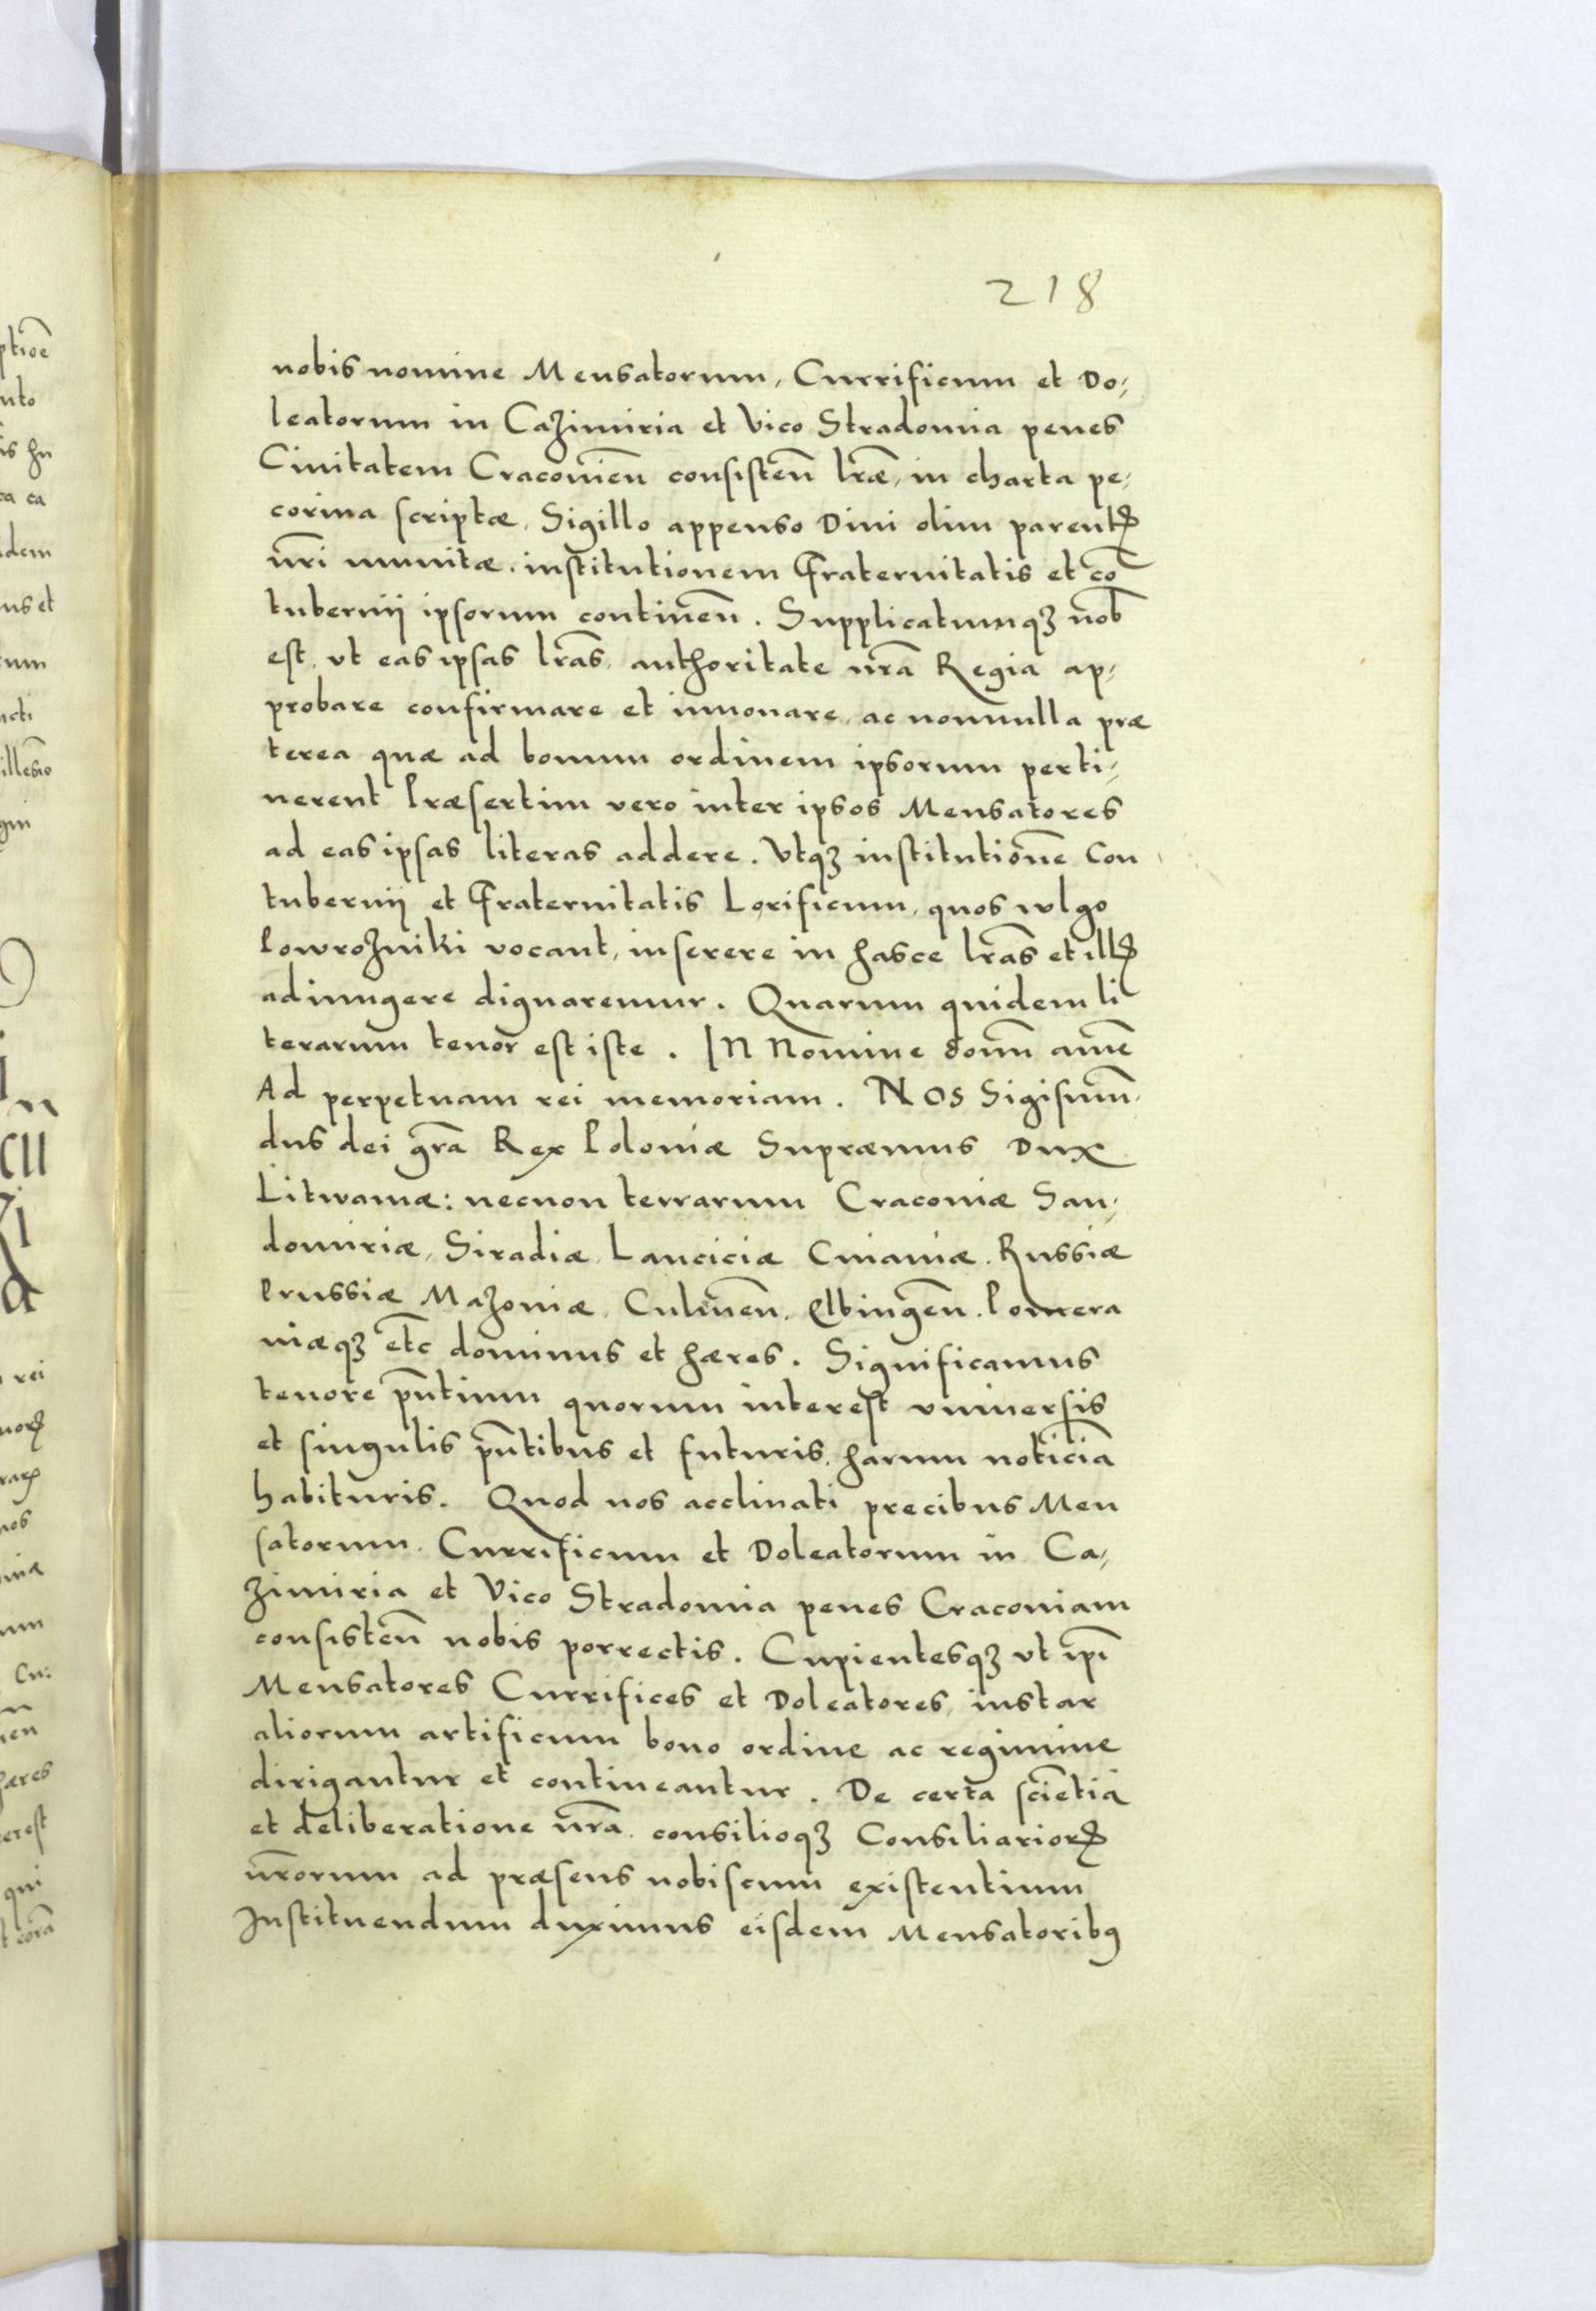 218
nobis nomine Mensatorum, Currificum et Do¬
leatorum in Cazimiria et Vico Stradomia penes
Ciuitatem Cracouień consisteń lr̃æ, in charta pe¬
corina scriptæ, Sigillo appenso Diui olim parentꝭ
nr̃i munitæ, institutionem Fraternitatis et cõ
tubernij ipsorum contineñ. Supplicatumqꝫ nob̃
est, vt eas ipsas lr̃as, authoritate nr̃a Regia ap¬
probare confirmare et innouare, ac nonnulla præ
terea quæ ad bonum ordinem ipsorum perti¬
nerent Præsertim vero inter ipsos Mensatores
ad eas ipsas literas addere. Vtqꝫ institutionẽ Con
tubernij et Fraternitatis Lorificum, quos wlgo
Powrozniki vocant, inserere in hasce lr̃as et illꝭ
adiungere dignaremur. Quarum quidem li
terarum tenor est iste. IN Nomine domĩ amẽ
Ad perpetuam rei memoriam. NOS Sigismũ¬
dus dei gr̃a Rex Poloniæ Supræmus Dux
Litwaniæ: necnon terrarum Cracouiæ San¬
domiriæ, Siradiæ, Lanciciæ Cuiauiæ. Russiæ
Prussiæ Mazouiæ, Culmeñ. Elbingeñ. Pomera
niæqꝫ etc̃ dominus et hæres. Significamus
tenore pñtium quorum interest vniuersis
et singulis pñtibus et futuris, harum noticiã
habituris. Quod nos acclinati precibus Men
satorum. Currificum et Doleatorum in Ca¬
zimiria et Vico Stradomia penes Cracouiam
consisteñ nobis porrectis. Cupientesqꝫ vt ip̃i
Mensatores Currifices et Doleatores, instar
aliorum artificum bono ordine ac regimine
dirigantur et contineantur. De certa sciẽtia
et deliberatione nr̃a. consilioqꝫ Consiliarioꝝ
nr̃orum ad præsens nobiscum existentium
Instituendum duximus eisdem Mensatoribꝰ